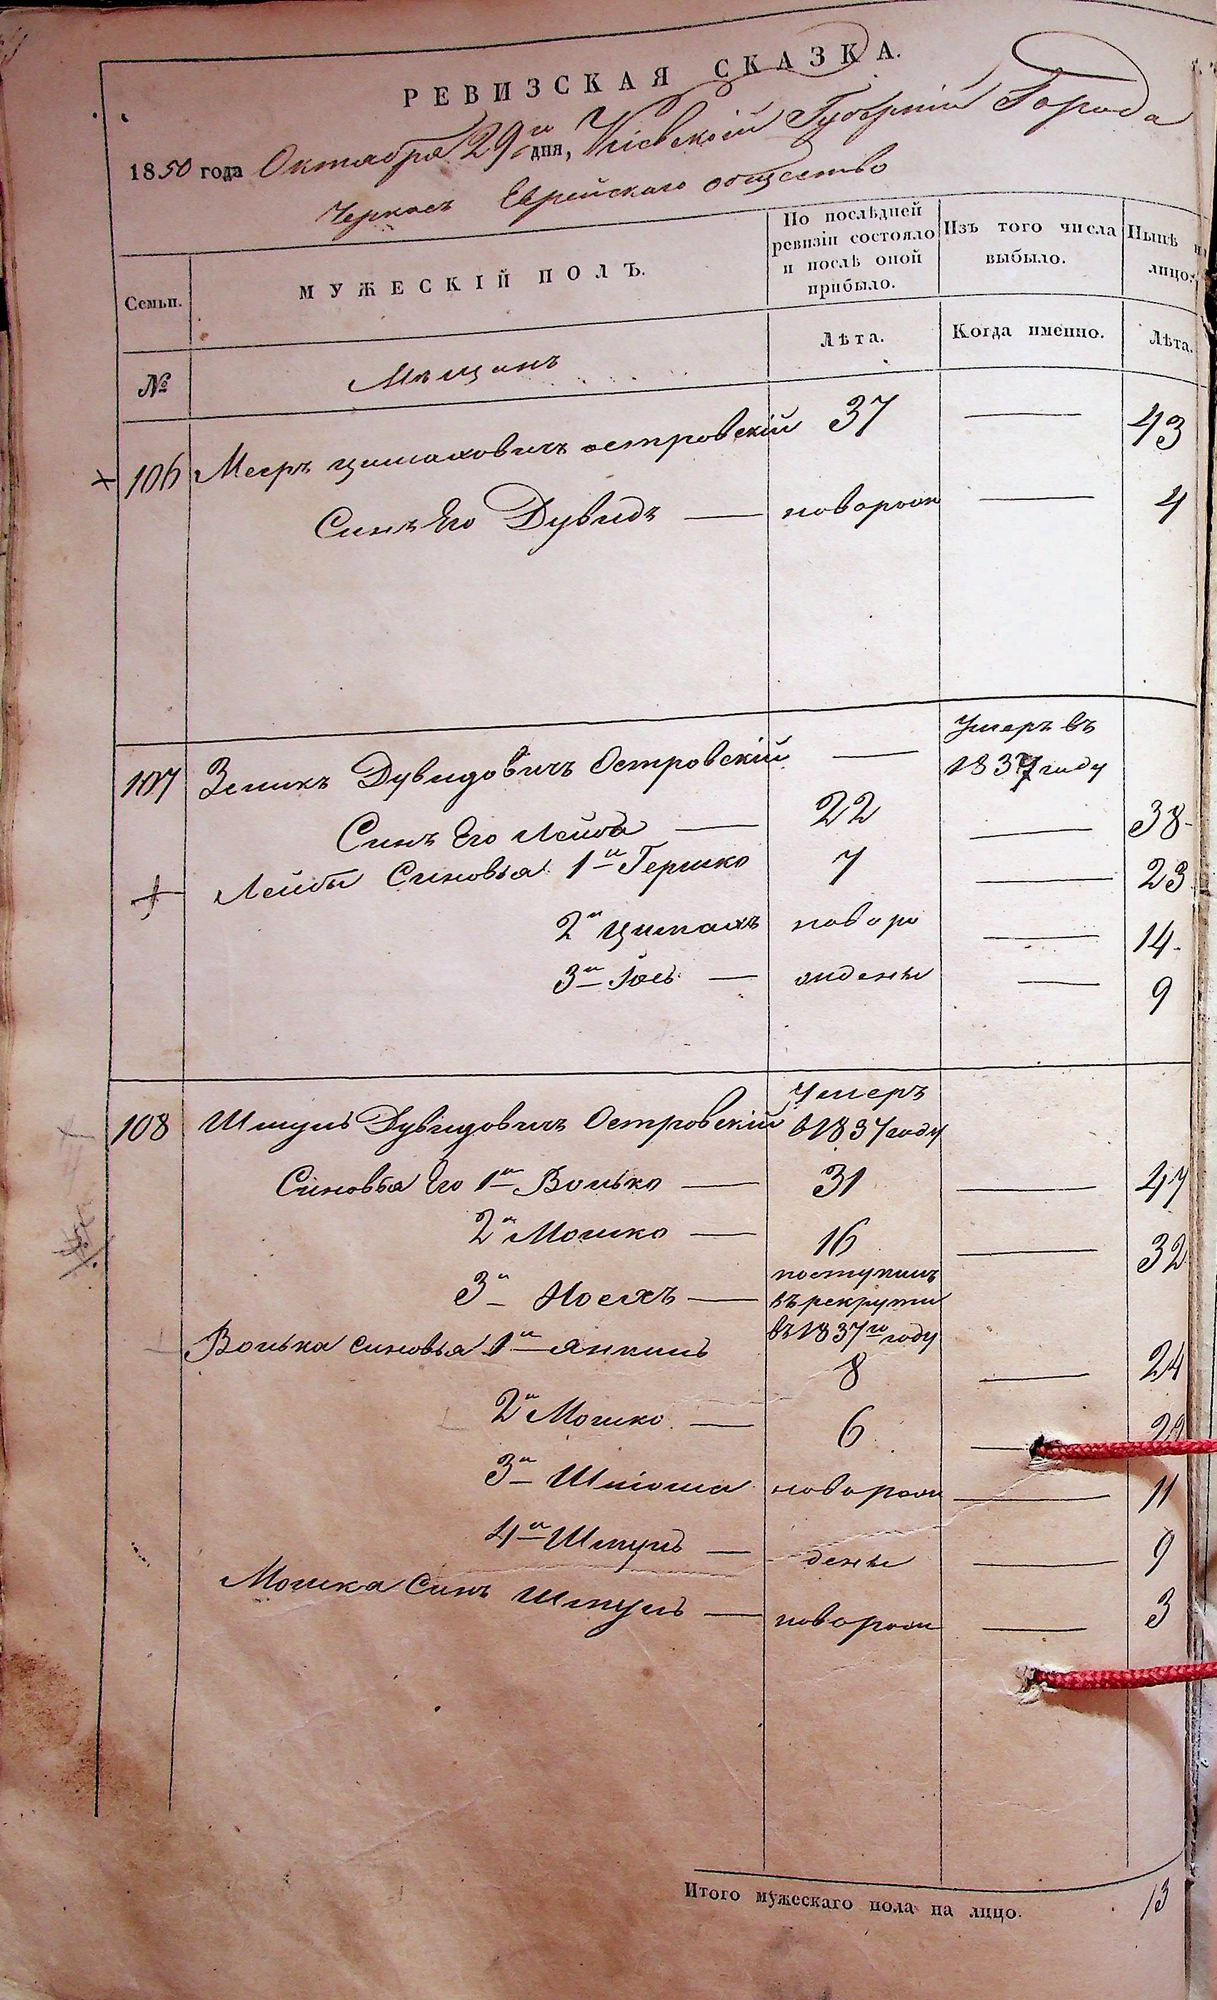 РЕВИЗСКАЯ СКАЗКА.
1850 года Октября 29го дня, Кіевской Губерніи Города
Черкасъ Еврейскаго общества
Семьи.
МУЖЕСКІЙ ПОЛЪ.
По послѣдней ревизіи состояло и послѣ оной прибыло.
Изъ того числа выбыло.
Нынѣ
лицо.
№
Мѣщанъ
Лѣта.
Когда именно.
Лѣта.
106 Мееръ островскій 37 — 43
Синъ Его Дувидъ — новорож — 4
107 Зеликъ Дувидовичъ Островскій — Умеръ въ 1837 году
Синъ Его Лейба — 22 — 38
Лейбы Синовья 1й Гершко 7 — 23
2й новоро — 14
3й Іось — ждены — 9
108 Шмуль Дувидовичъ Островскій Умеръ в 1837 году
Синовья Его 1й Волько — 31 — 47
2й Мошко — 16 — 32
3й Носихъ — поступилъ въ рекруты въ 1837го году
Волька синовья 1й Янкиль 8 — 24
2й Мошко — 6 — 22
3й новорож — 11
4й Шмуль — дены — 9
Мошка Синъ Шмуль — новорож — 3
Итого мужескаго пола на лицо. 13